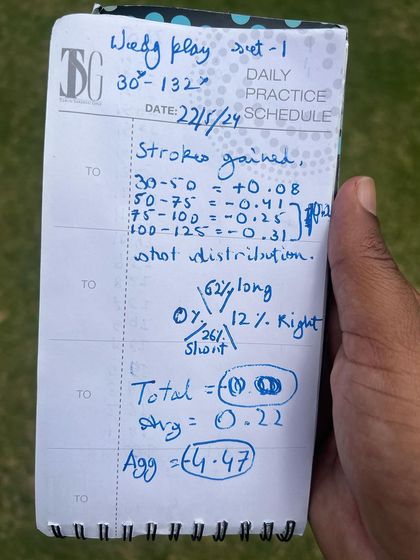 Wedg play set - 1
30y - 132y
TSG
DAILY
PRACTICE
SCHEDULE
DATE: 22/5/24
Strokes gained.
TO
30-50 = +0.08
50-75 = -0.41
75-100 = -0.25
100-125 = -0.31
shot distribution.
TO
62% long
0% 12% Right
26%
Short
TO
Total =
Avg = 0.22
Agg = -4.47
TO